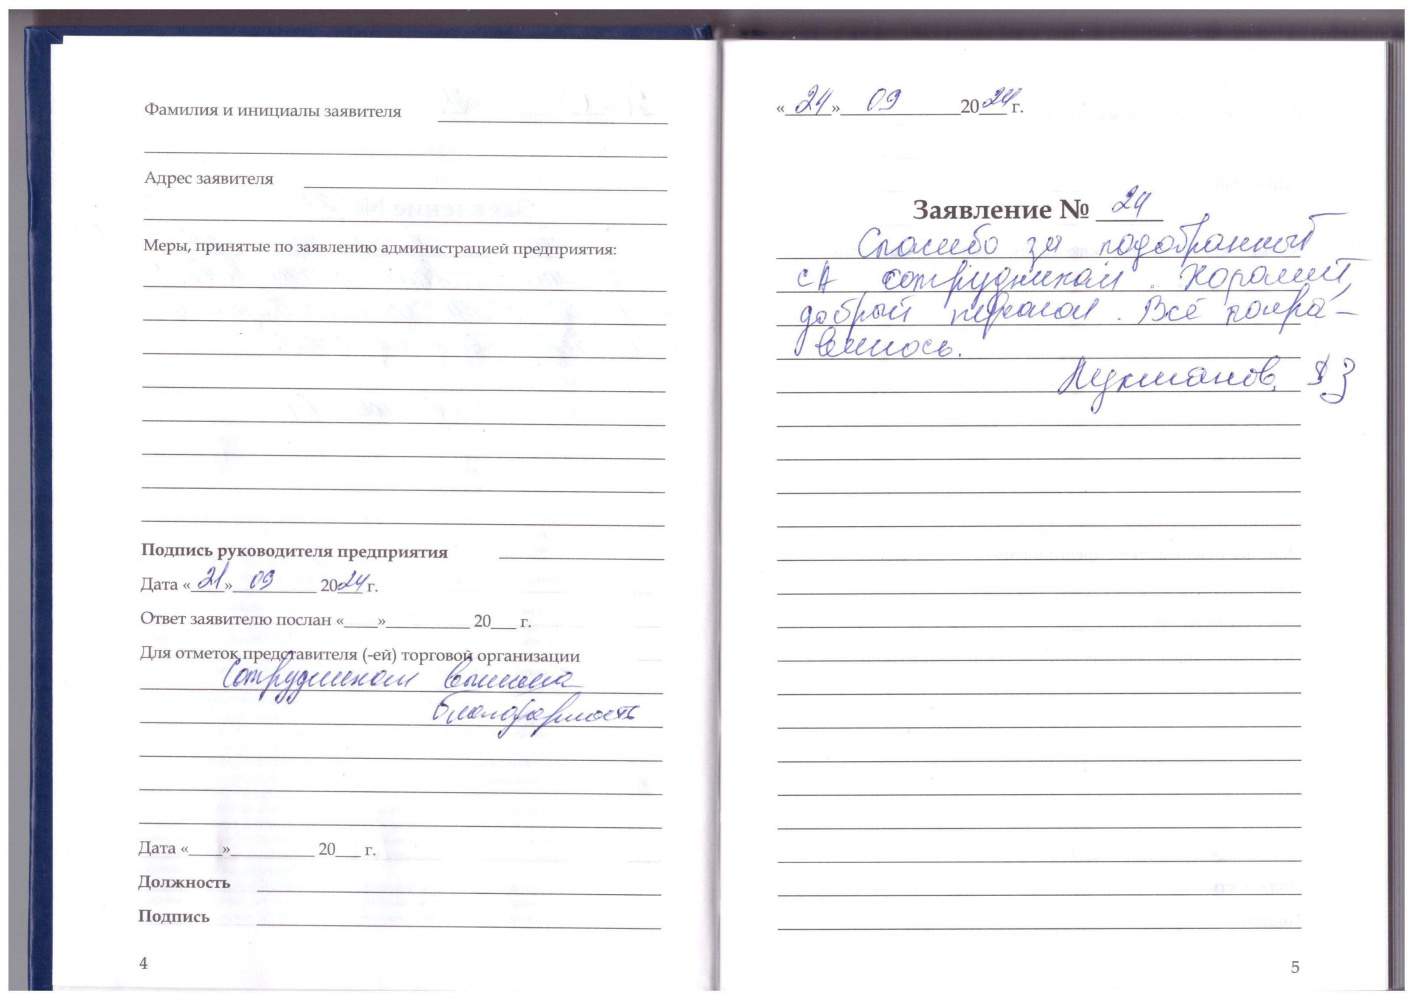 Фамилия и инициалы заявителя
Адрес заявителя
Меры, принятые по заявлению администрацией предприятия:
Подпись руководителя предприятия
Дата «21» 09 2024 г.
Ответ заявителю послан «____»__________ 20___ г.
Для отметок представителя (-ей) торговой организации
Сотрудникам
благодарность
Дата «____»__________ 20___ г.
Должность
Подпись
4
«24» 09 2024 г.
Заявление № 24
Спасибо за подобранный
СА сотрудникам. Хороший,
добрый персонал. Всё понра-
вилось.
5